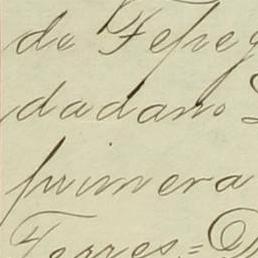 de Tepeg
dadano
primera
Torres.=